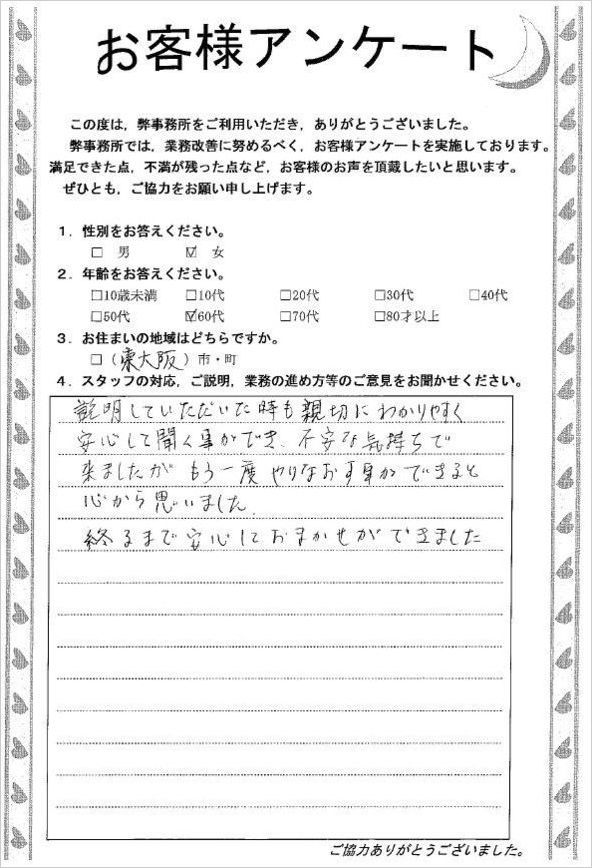 お客様アンケート
この度は，弊事務所をご利用いただき，ありがとうございました。
弊事務所では，業務改善に努めるべく，お客様アンケートを実施しております。
満足できた点，不満が残った点など，お客様のお声を頂戴したいと思います。
ぜひとも，ご協力をお願い申し上げます。
１．性別をお答えください。
□ 男 ☑ 女
２．年齢をお答えください。
□10歳未満 □10代 □20代 □30代 □40代
□50代 ☑60代 □70代 □80才以上
３．お住まいの地域はどちらですか。
□（東大阪）市・町
４．スタッフの対応，ご説明，業務の進め方等のご意見をお聞かせください。
説明していただいた時も親切にわかりやすく
安心して聞く事ができ、不安な気持ちで
来ましたが もう一度やりなおす事ができると
心から思いました.
終るまで安心しておまかせができました
ご協力ありがとうございました。